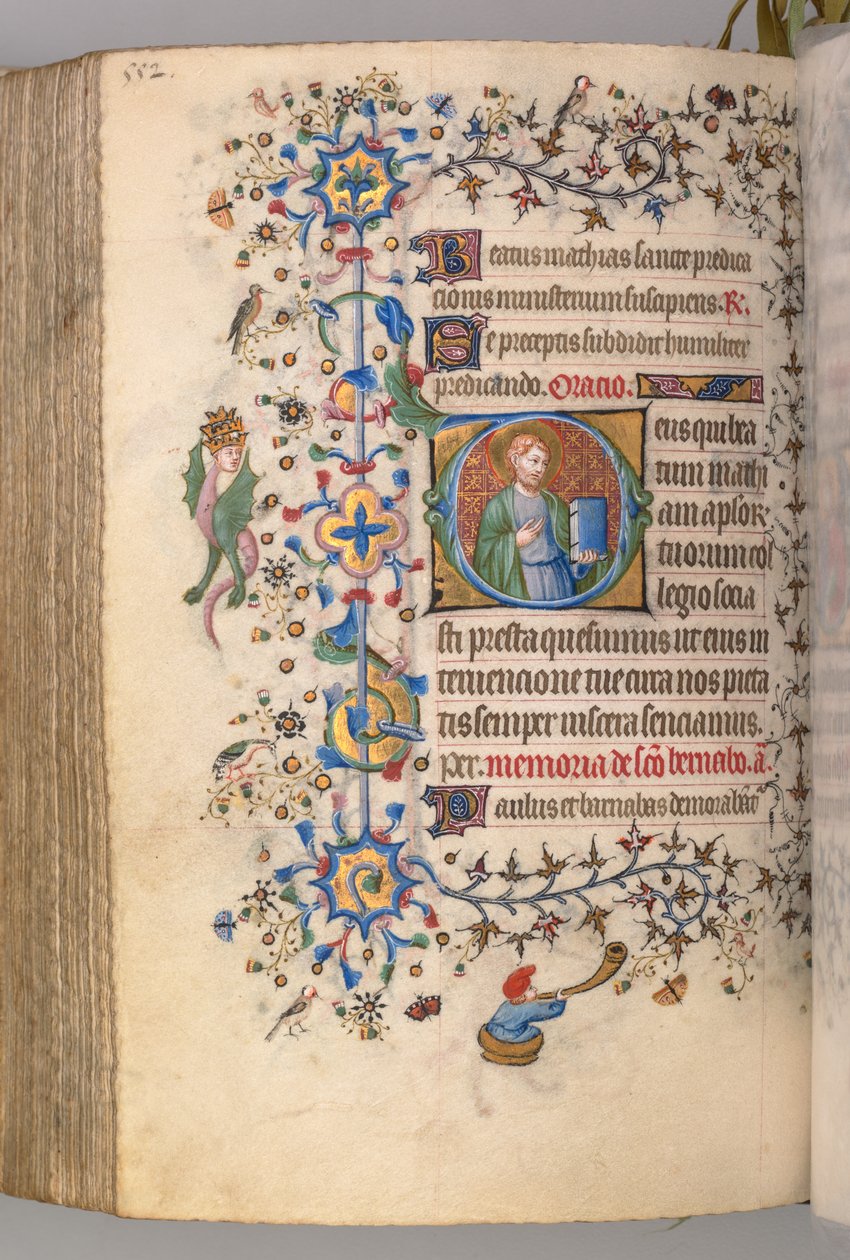 552.
Beatus mathias sancte predica
cionis ministerium suscipiens. R.
Se preceptis subdidit humiliter
predicando. Oracio.
Deus qui bea
tum mathi
am aplor
tuorum col
legio socia
sti presta quesumus ut eius in
tervencione tue circa nos pieta
tis semper viscera senciamus.
Per. memoria de sco bernabo. a.
Paulus et barnabas demorabnt